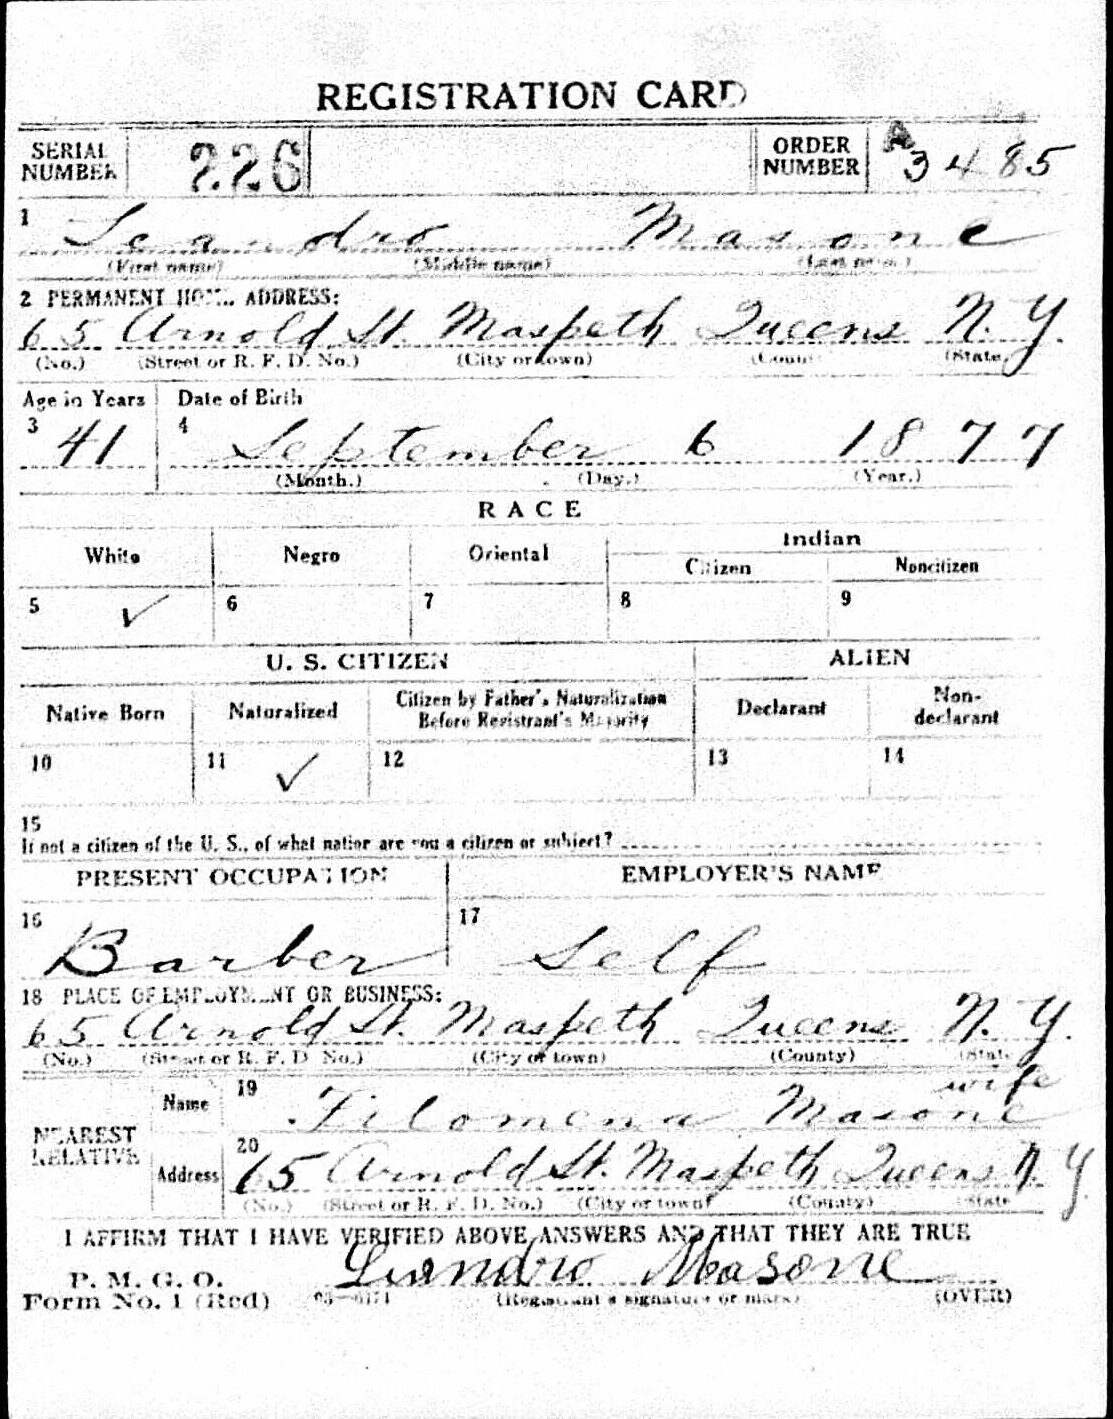 REGISTRATION CARD
SERIAL NUMBER 226 ORDER NUMBER A 3485
1 Leandro Masone
(First name) (Middle name) (Last name)
2 PERMANENT HOME ADDRESS:
65 Arnold St. Maspeth Queens N.Y.
(No.) (Street or R. F. D. No.) (City or town) (County) (State)
Age in Years Date of Birth
3 41 4 September 6 1877
(Month.) (Day.) (Year.)
RACE
White Negro Oriental Indian
Citizen Noncitizen
5 ✓ 6 7 8 9
U. S. CITIZEN ALIEN
Native Born Naturalized Citizen by Father's Naturalization Before Registrant's Majority Declarant Non-declarant
10 11 ✓ 12 13 14
15
If not a citizen of the U. S., of what nation are you a citizen or subject?
PRESENT OCCUPATION EMPLOYER'S NAME
16 Barber 17 Self
18 PLACE OF EMPLOYMENT OR BUSINESS:
65 Arnold St. Maspeth Queens N.Y.
(No.) (Street or R. F. D. No.) (City or town) (County) (State)
wife
NEAREST RELATIVE Name 19 Filomena Masone
Address 20 65 Arnold St. Maspeth Queens N.Y.
(No.) (Street or R. F. D. No.) (City or town) (County) (State)
I AFFIRM THAT I HAVE VERIFIED ABOVE ANSWERS AND THAT THEY ARE TRUE
P. M. G. O.
Form No. 1 (Red) 03—6171 Leandro Masone
(Registrant's signature or mark) (OVER)